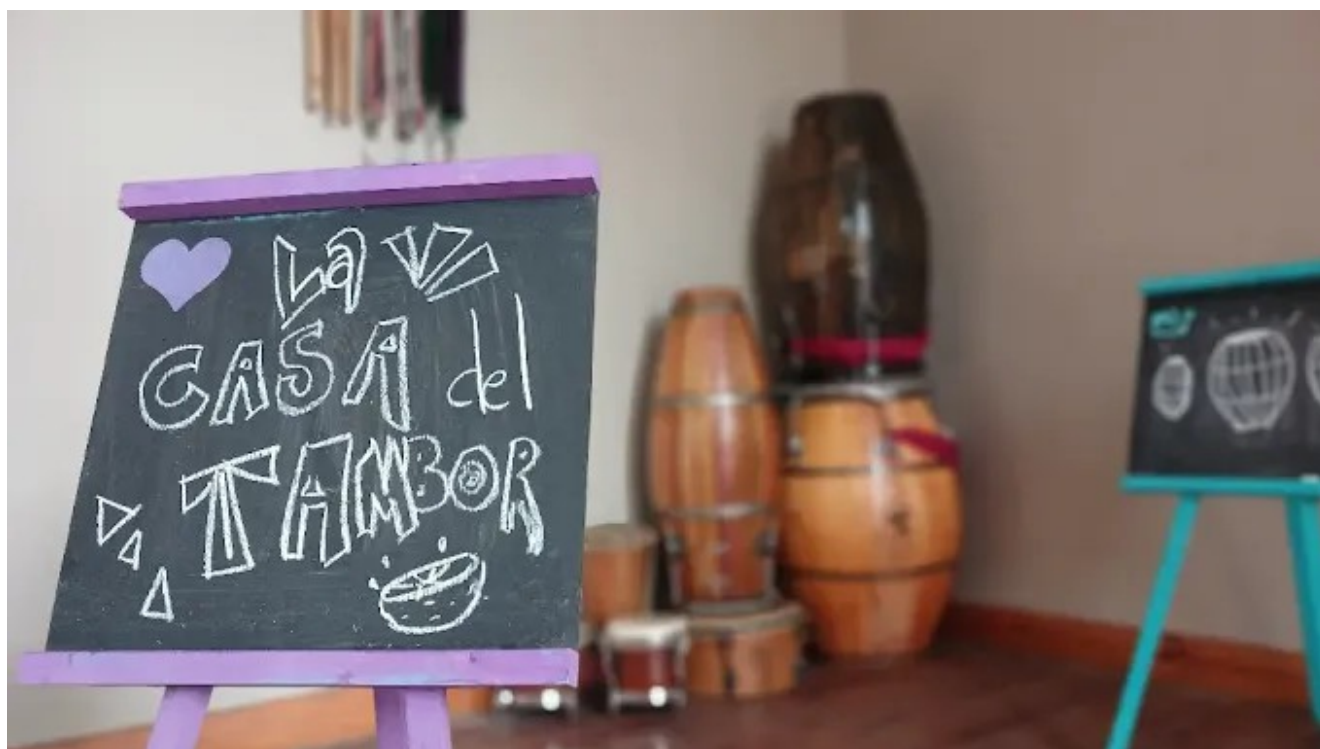 La
CASA del
TAMBOR